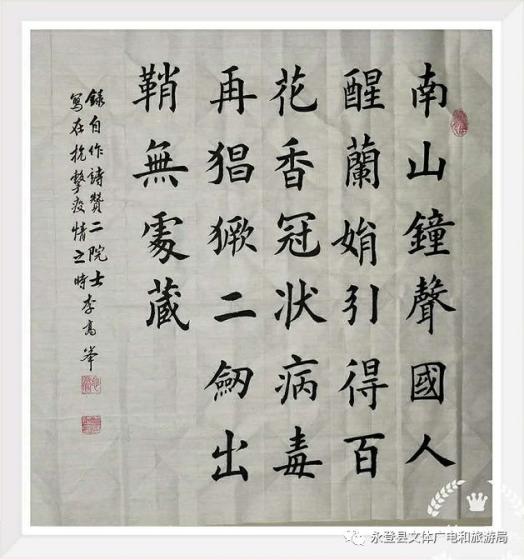 南山鐘聲國人
醒蘭娟引得百
花香冠狀病毒
再猖獗二劒出
鞘無處藏
錄自作詩贊二院士
寫在抗擊疫情之時李高峯
永登县文体广电和旅游局